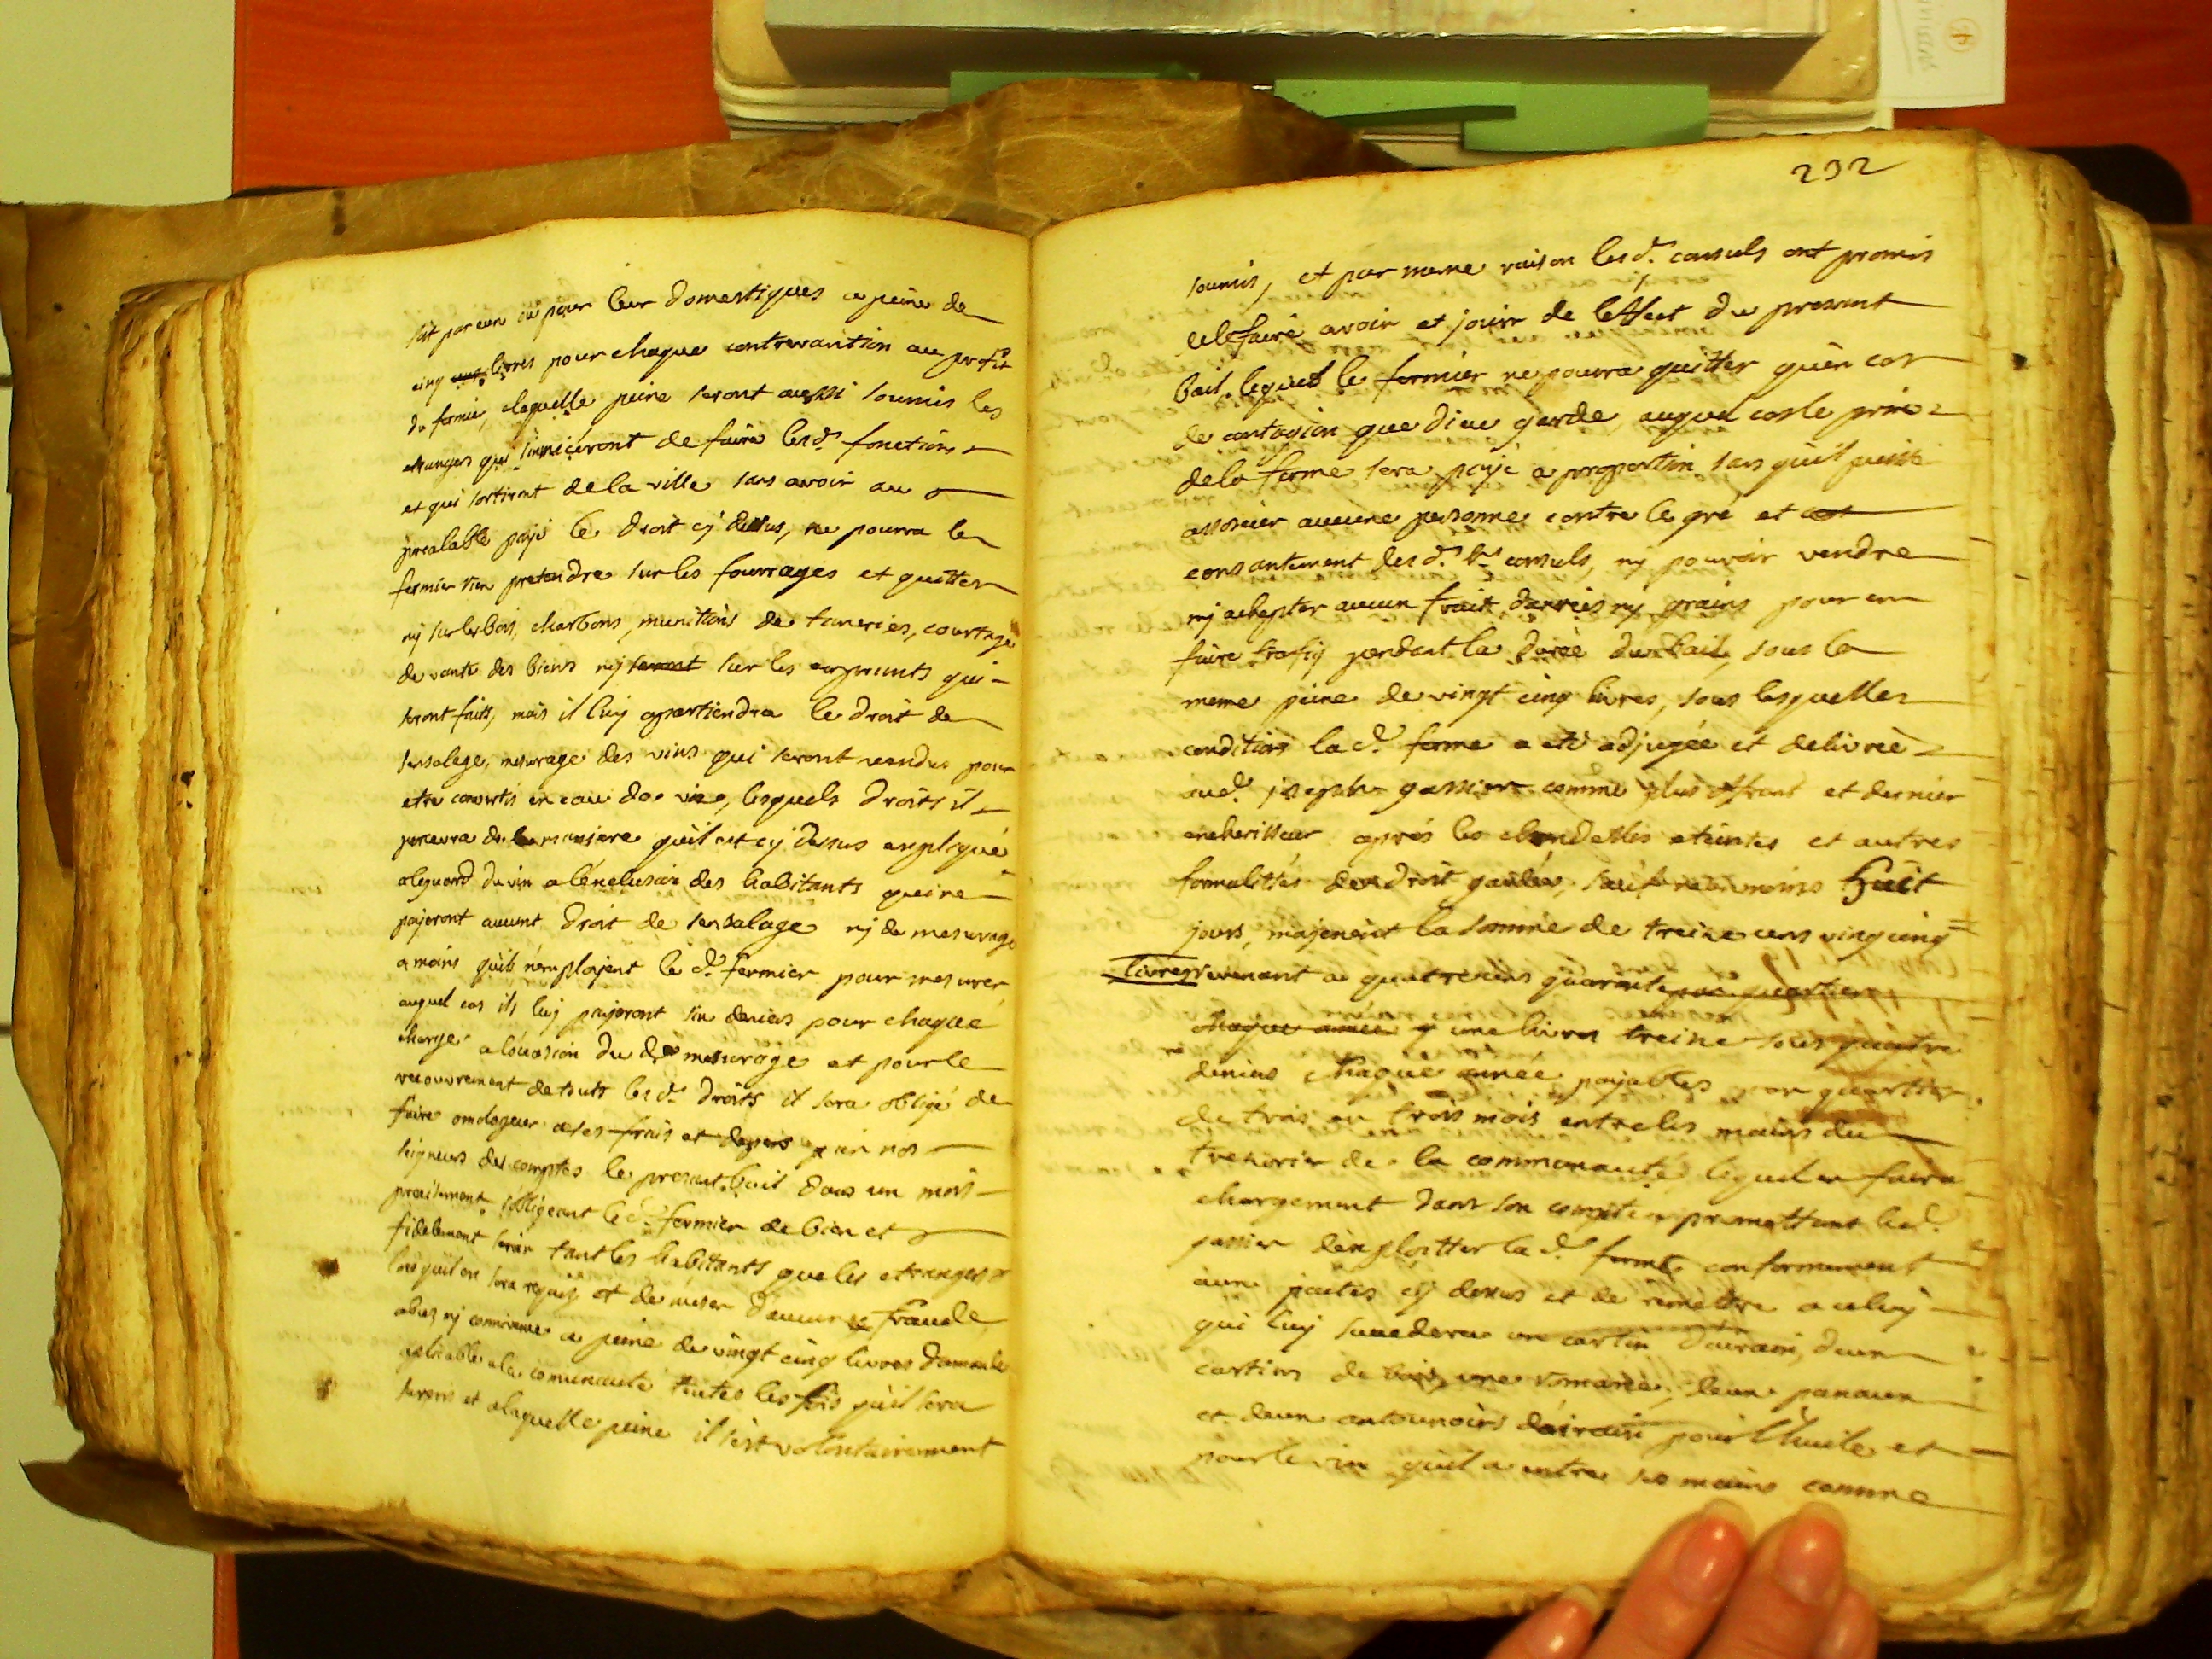 soit par eux ou pour leur domestiques a peine de
cinq livres pour chaque contrevantion au profit
du fermier, alaquelle peine seront aussi soumis les
etrangers qui simiceront de faire lesd. fonctions
et qui sortiront de la ville sans avoir au
prealable payé le droit cy dessus, ne pourra le
fermier rien pretendre sur les fourrages et
ny sur les bois, charbons, munitions de taneries, courtage
de vante des biens ny seront sur les emprunts qui
seront faits, mais il luy apartiendra le droit de
sensalage, mesurage des vins qui seront vendus pour
etre convertis en eau de vie, lesquels droits il
percevra de la maniere quil est cy dessus expliqué
alegard du vin a lexclusion des habitants qui ne
payeront aucunt droit de sensalage ny de mesurage
a moins quils n'employent le d. fermier pour mesurer
auquel cas ils luy payeront six deniers pour chaque
charge a loccasion du d. mesurage et pour le
recouvrement de touts les d. droits il sera obligé de
faire omologuer a ses frais et depans par nos
seigneurs des comptes le presant bail dans un mois
precisement, sobligeant le d. fermier de bien et
fidellement servir tant les habitants que les etrangers
lors quil en sera requis et de nuser daucune fraude
abus ny connivance a peine de vingt cinq livres damande
aplicable a la comunauté toutes les fois quil sera
surpris et alaquelle peine il sest volontairement
232
soumis, et par meme raison lesd. consuls ont promis
de le faire avoir et jouir de leffect du presant
bail, lequel le fermier ne pourra quitter qu'en cas
de contagion que dieu garde, auquel cas le prix
de la ferme sera payé a proportion sans qu'il puisse
associer aucune personne contre le gré et
consantement desd. srs. consuls, ny pouvoir vendre
ny achepter aucun fruit, danrées ny grains pour en
faire trafiq pendant la durée du bail, sous la
meme peine de vingt cinq livres, sous lesquelles
conditions la d. ferme a eté adjugée et delivrée
aud. joseph gassier comme plus offrant et dernier
encherisseur aprés les chandelles eteintes et autres
formalittés de droit gardées, sauf neanmoins huit
jours, moyenent la somme de treize cens vingcinq
livres revenant a quatre cens quarante par quartier
chaque année y une livres treise sous quatre
deniers chaque année payables par quartier
de trois en trois mois entre les mains du
tresorier de la communauté lequel en faira
chargement dans son compte promettant le d.
gassier dexploitter la d. ferme conformement
aux pactes cy dessus et de remettre a celuy
qui luy succedera un cartin dairain, deux
cartins de bois, une romaine, deux panaux
et deux antounoirs dairain pour l'huile et
pour le vin quil a entre ses mains comme